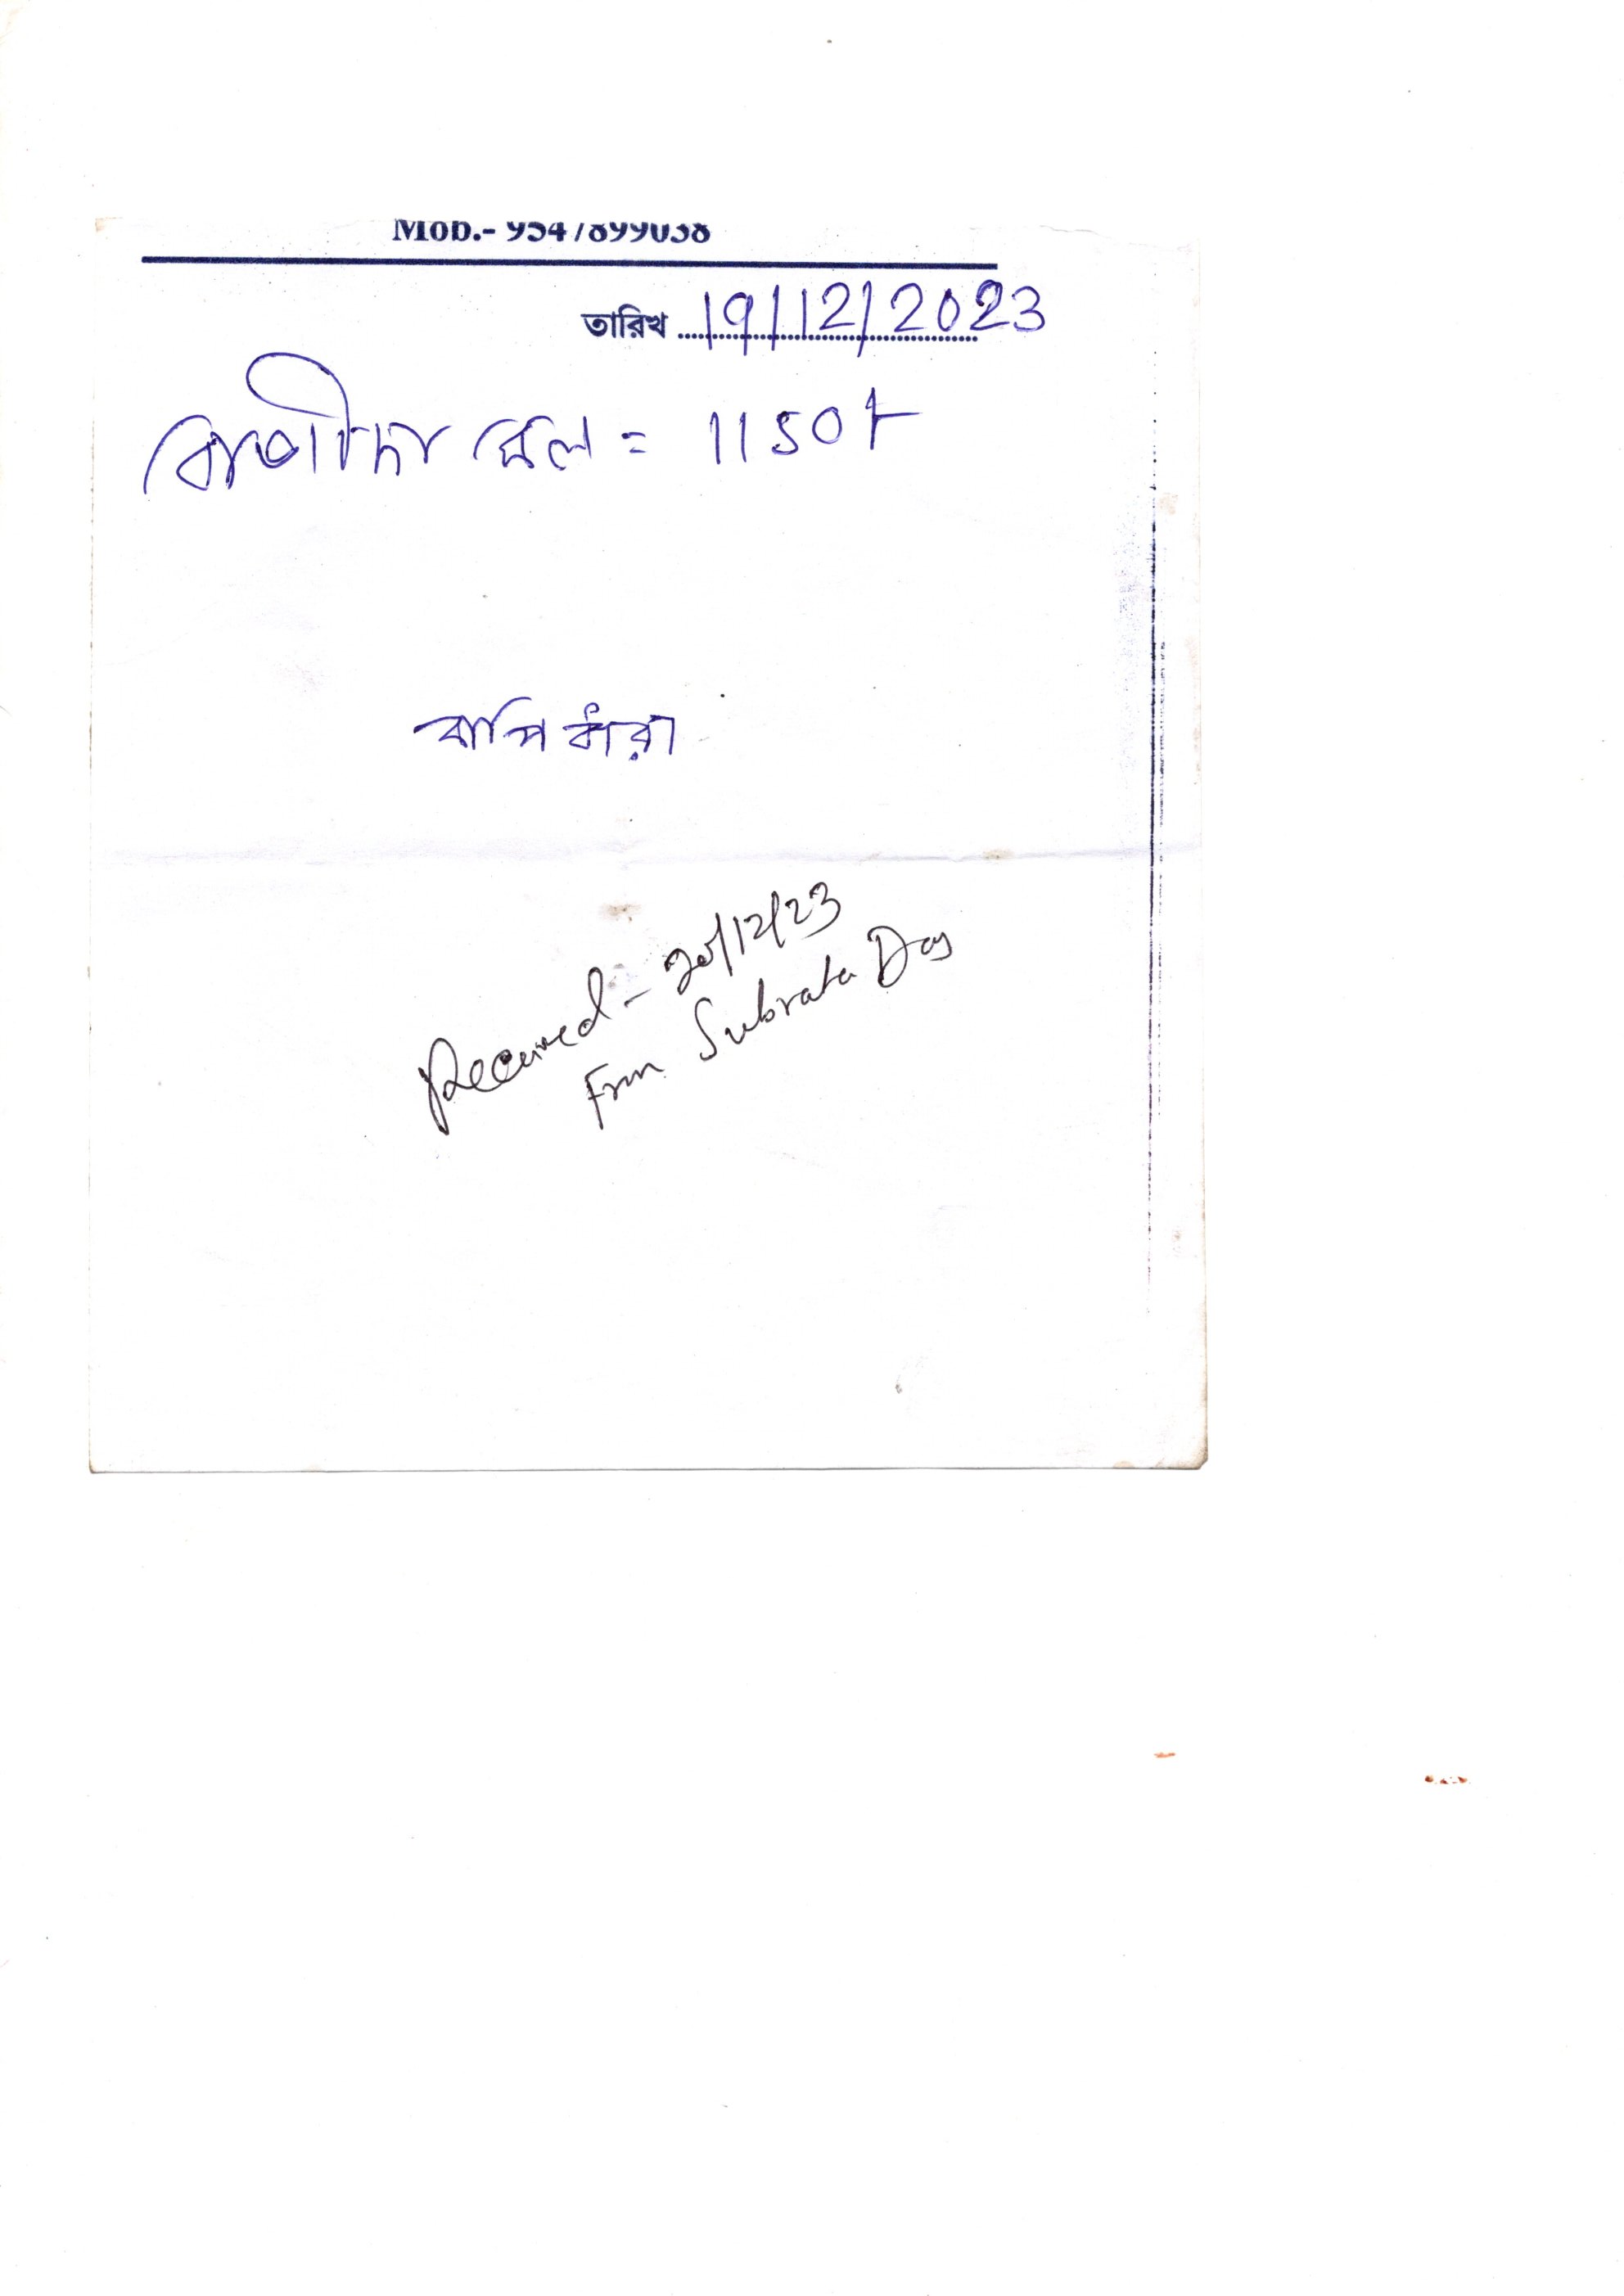 Mob.- 9547899038
তারিখ 19/12/2023
= 1150/-
বাপি ধাঁরা
Received - 20/12/23
From Subrata Das